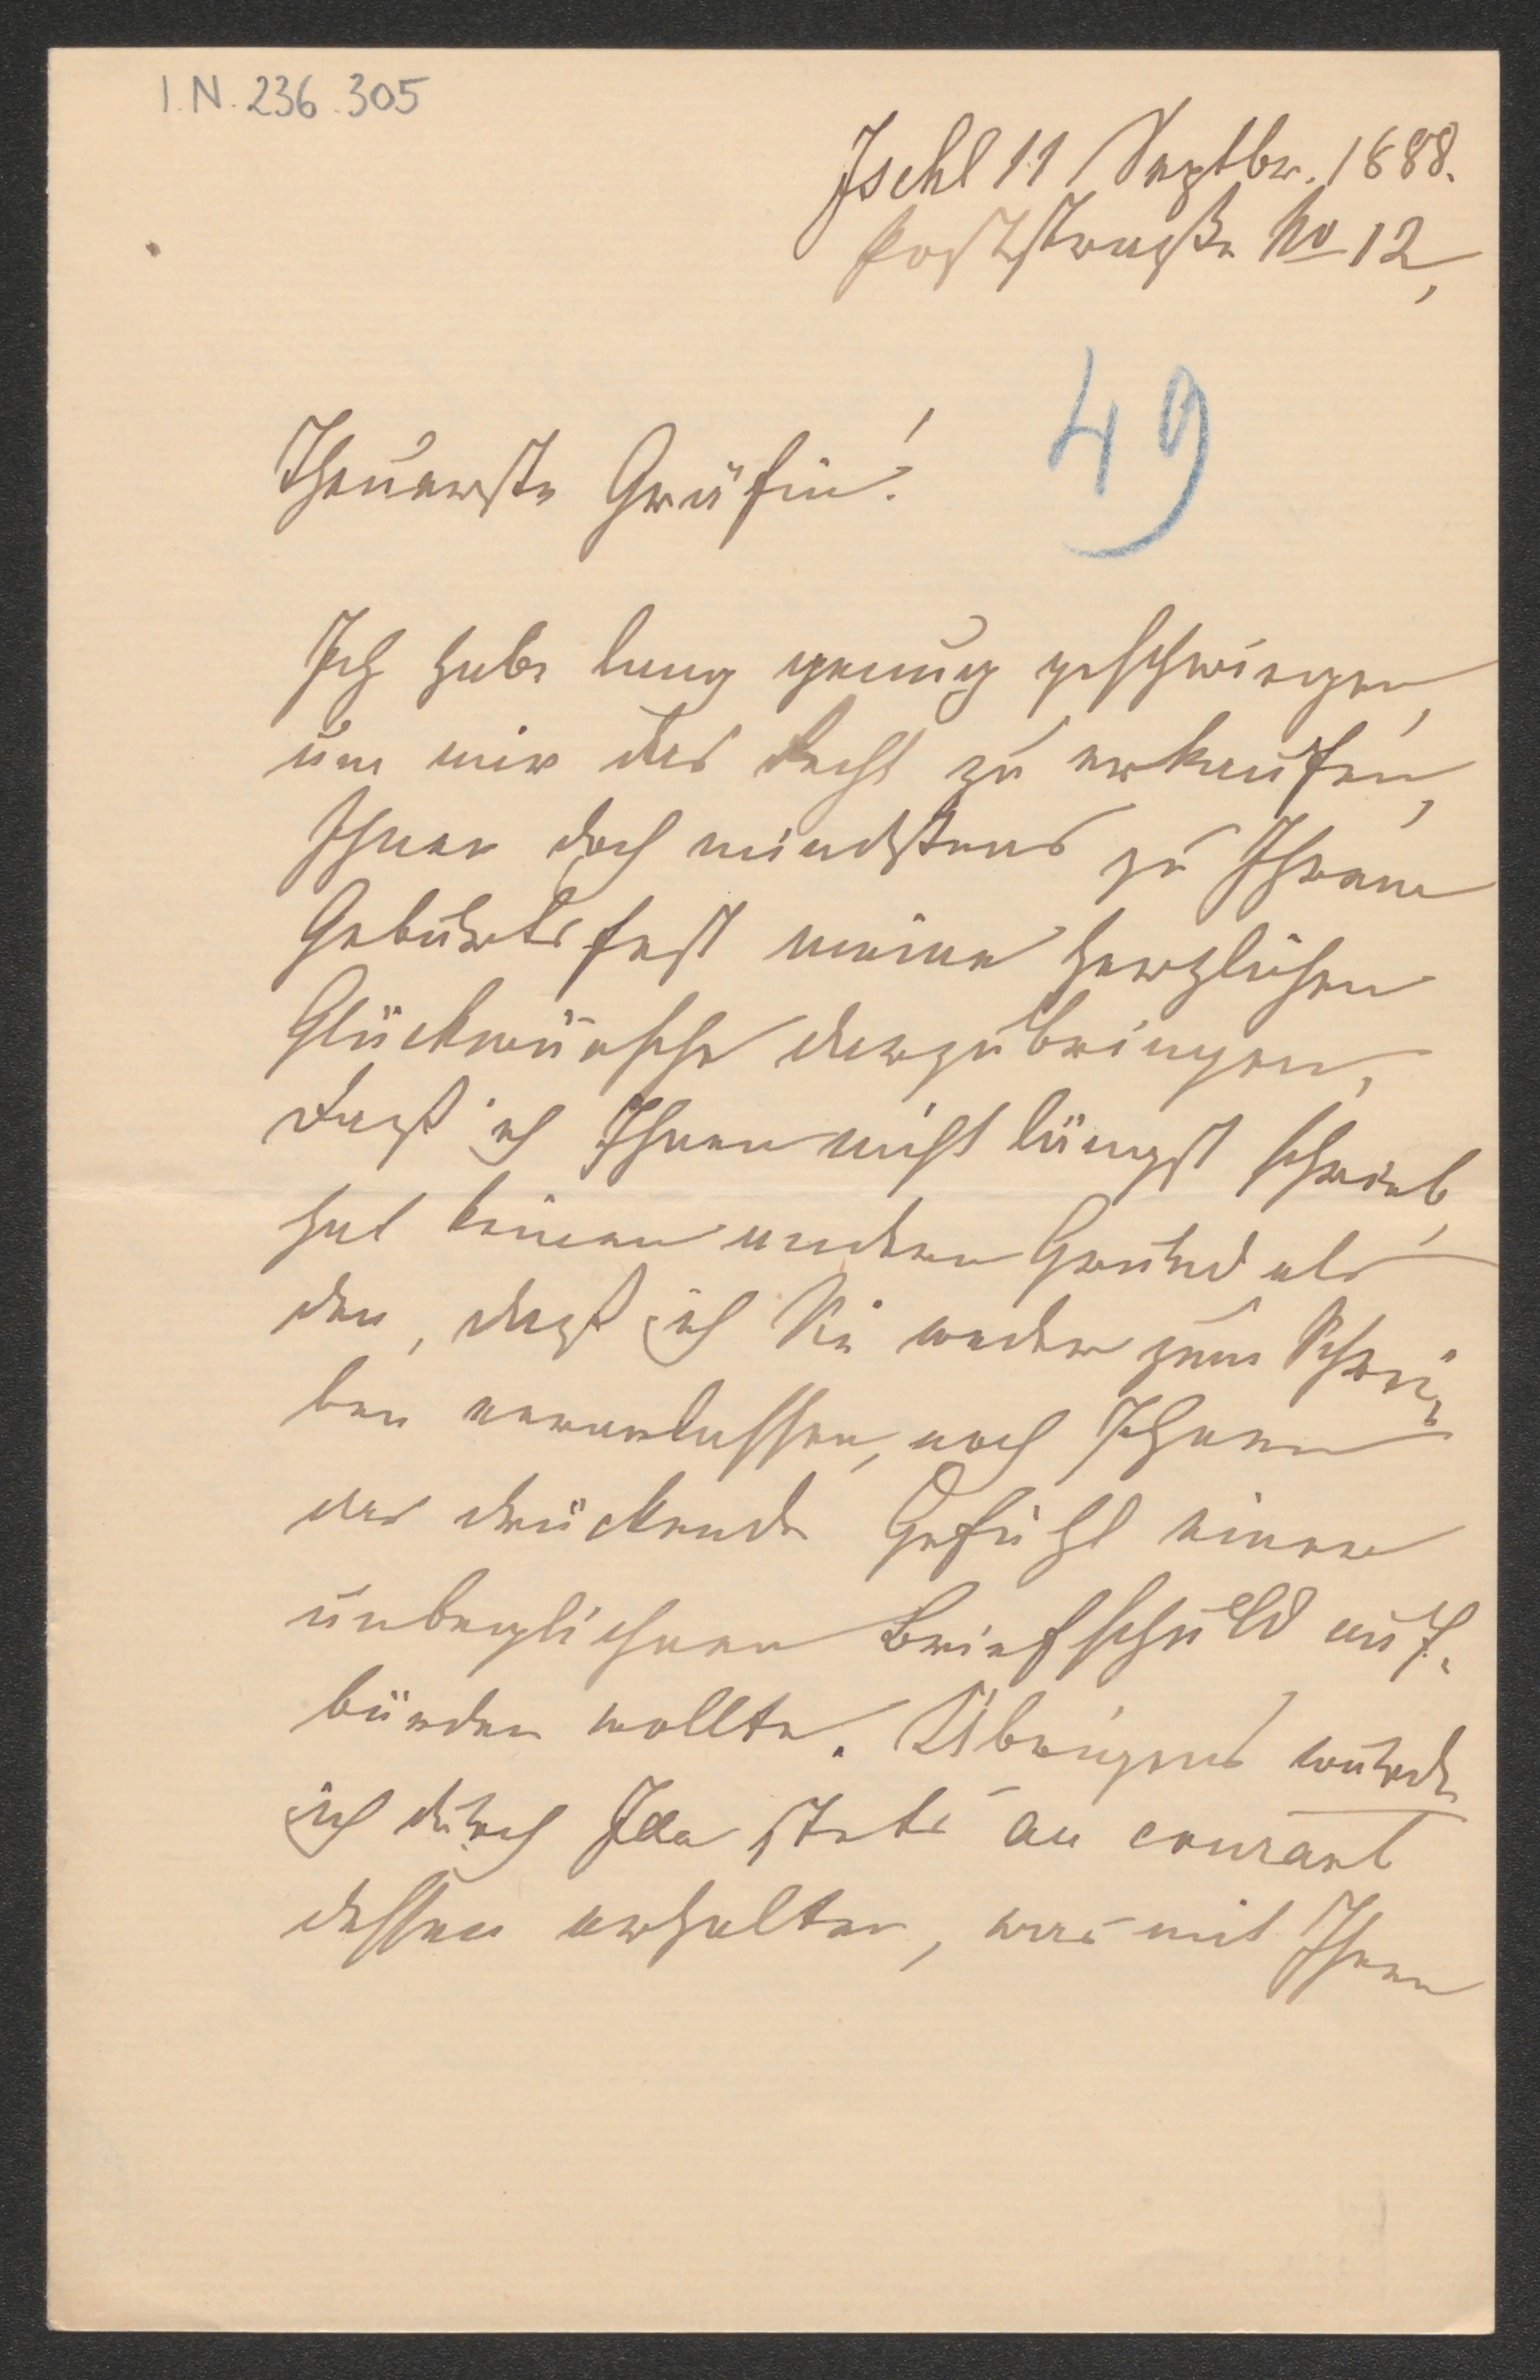 I.N. 236.305
Ischl 11 Septbr. 1888.
Poststraße No 12,
49
Theuerste Gräfin!
Ich habe lang genug geschwiegen,
um mir das Recht zu erkaufen,
Ihnen doch mindstens zu Ihrem
Geburtsfest meine herzlichen
Glückwünsche darzubringen,
Daß ich Ihnen nicht längst schrieb,
hat keinen andern Grund als
den, daß ich Sie weder zum Schrei-
ben veranlassen, noch Ihnen
das drückende Gefühl einer
unbeglichenen Briefschuld auf-
bürden wollte. Übrigens wurde
ich durch Ida stets au courant
dessen erhalten, was mit Ihnen